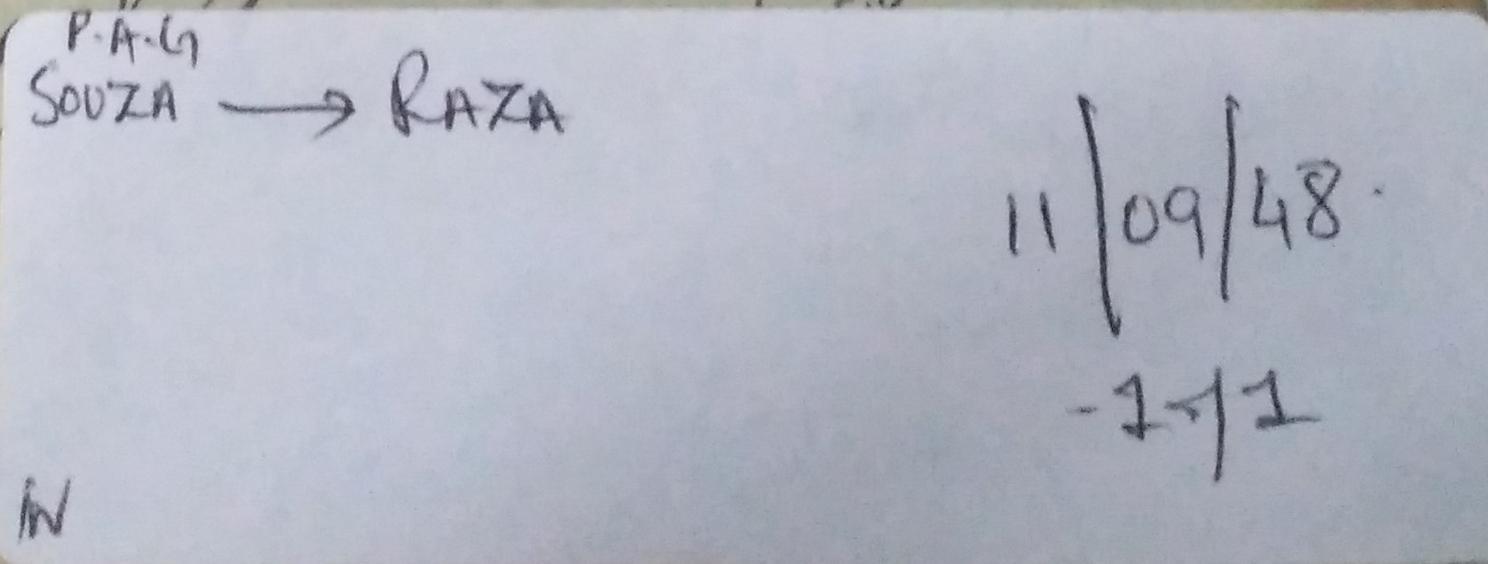 P.A.G
SOUZA → RAZA
11/09/48.
-1-/1
IN